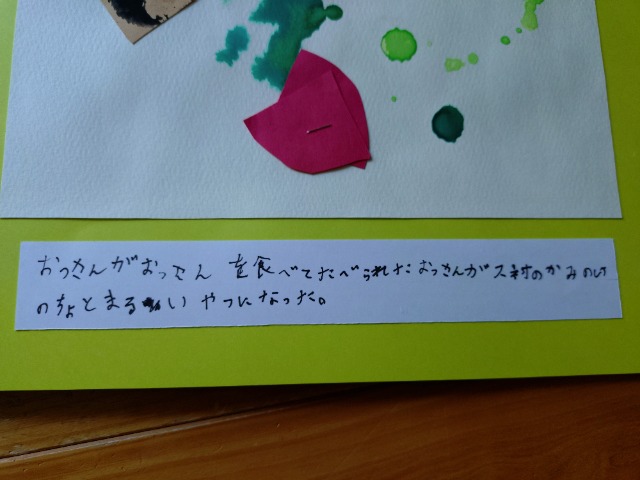 おっさんがおっさん を食べてたべられたおっさんがス村のかみのけ
のちょとまるい やつになった。